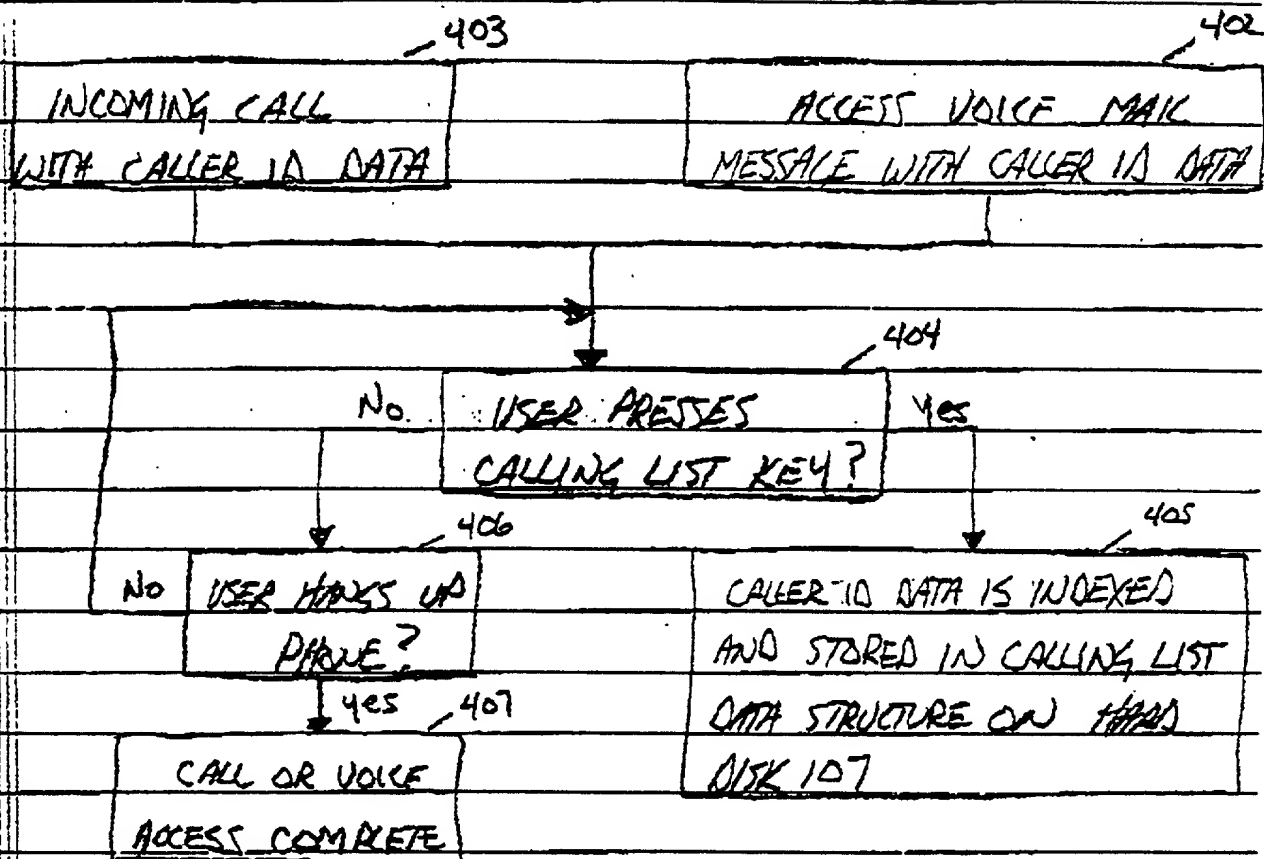 403
402
INCOMING CALL
WITH CALLER ID DATA
ACCESS VOICE MAIL
MESSAGE WITH CALLER ID DATA
404
No
USER PRESSES
CALLING LIST KEY?
Yes
406
405
No
USER HANGS UP
PHONE?
CALLER-ID DATA IS INDEXED
AND STORED IN CALLING LIST
DATA STRUCTURE ON HARD
DISK 107
yes
407
CALL OR VOICE
ACCESS COMPLETE